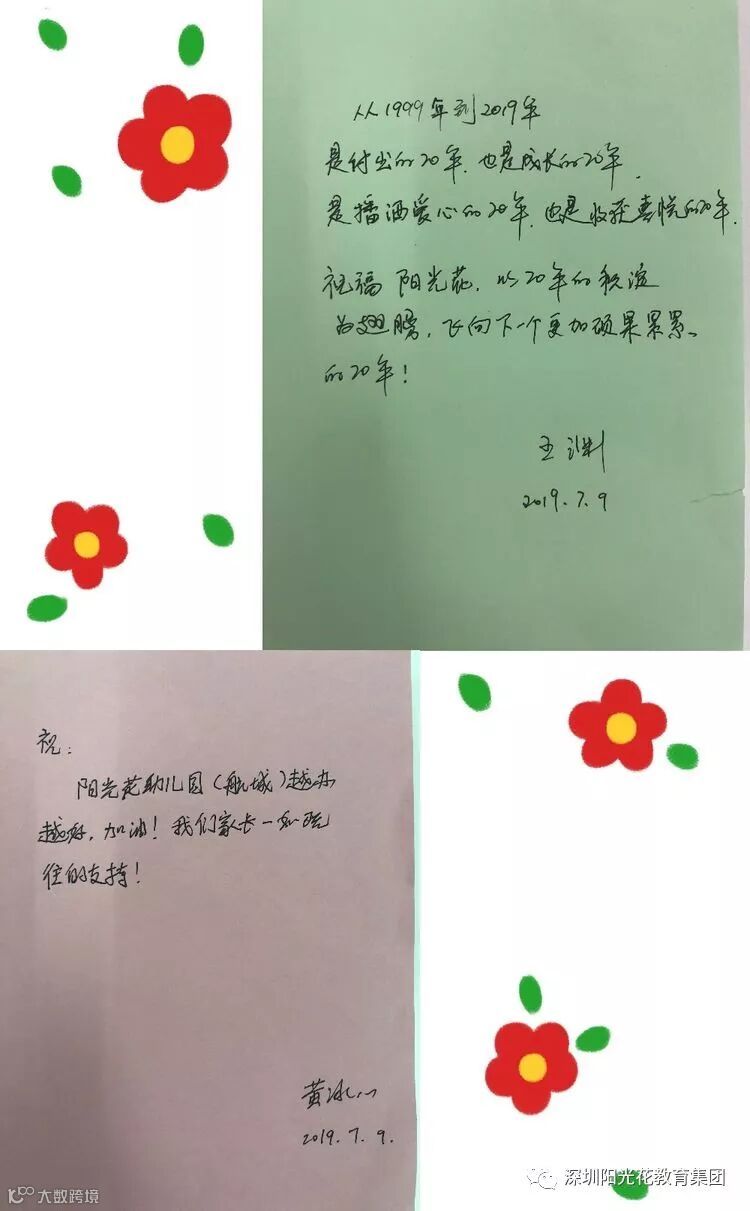 从1999年到2019年
是付出的20年.也是成长的20年.
是播洒爱心的20年.也是收获喜悦的20年.
祝福 阳光花,以20年的积淀
为翅膀,飞向下一个更加硕果累累
的20年!
王渊
2019.7.9
祝:
阳光花幼儿园(航城)越办
越好,加油!我们家长一如既
往的支持!
黄冰心
2019.7.9.
大数跨境
深圳阳光花教育集团